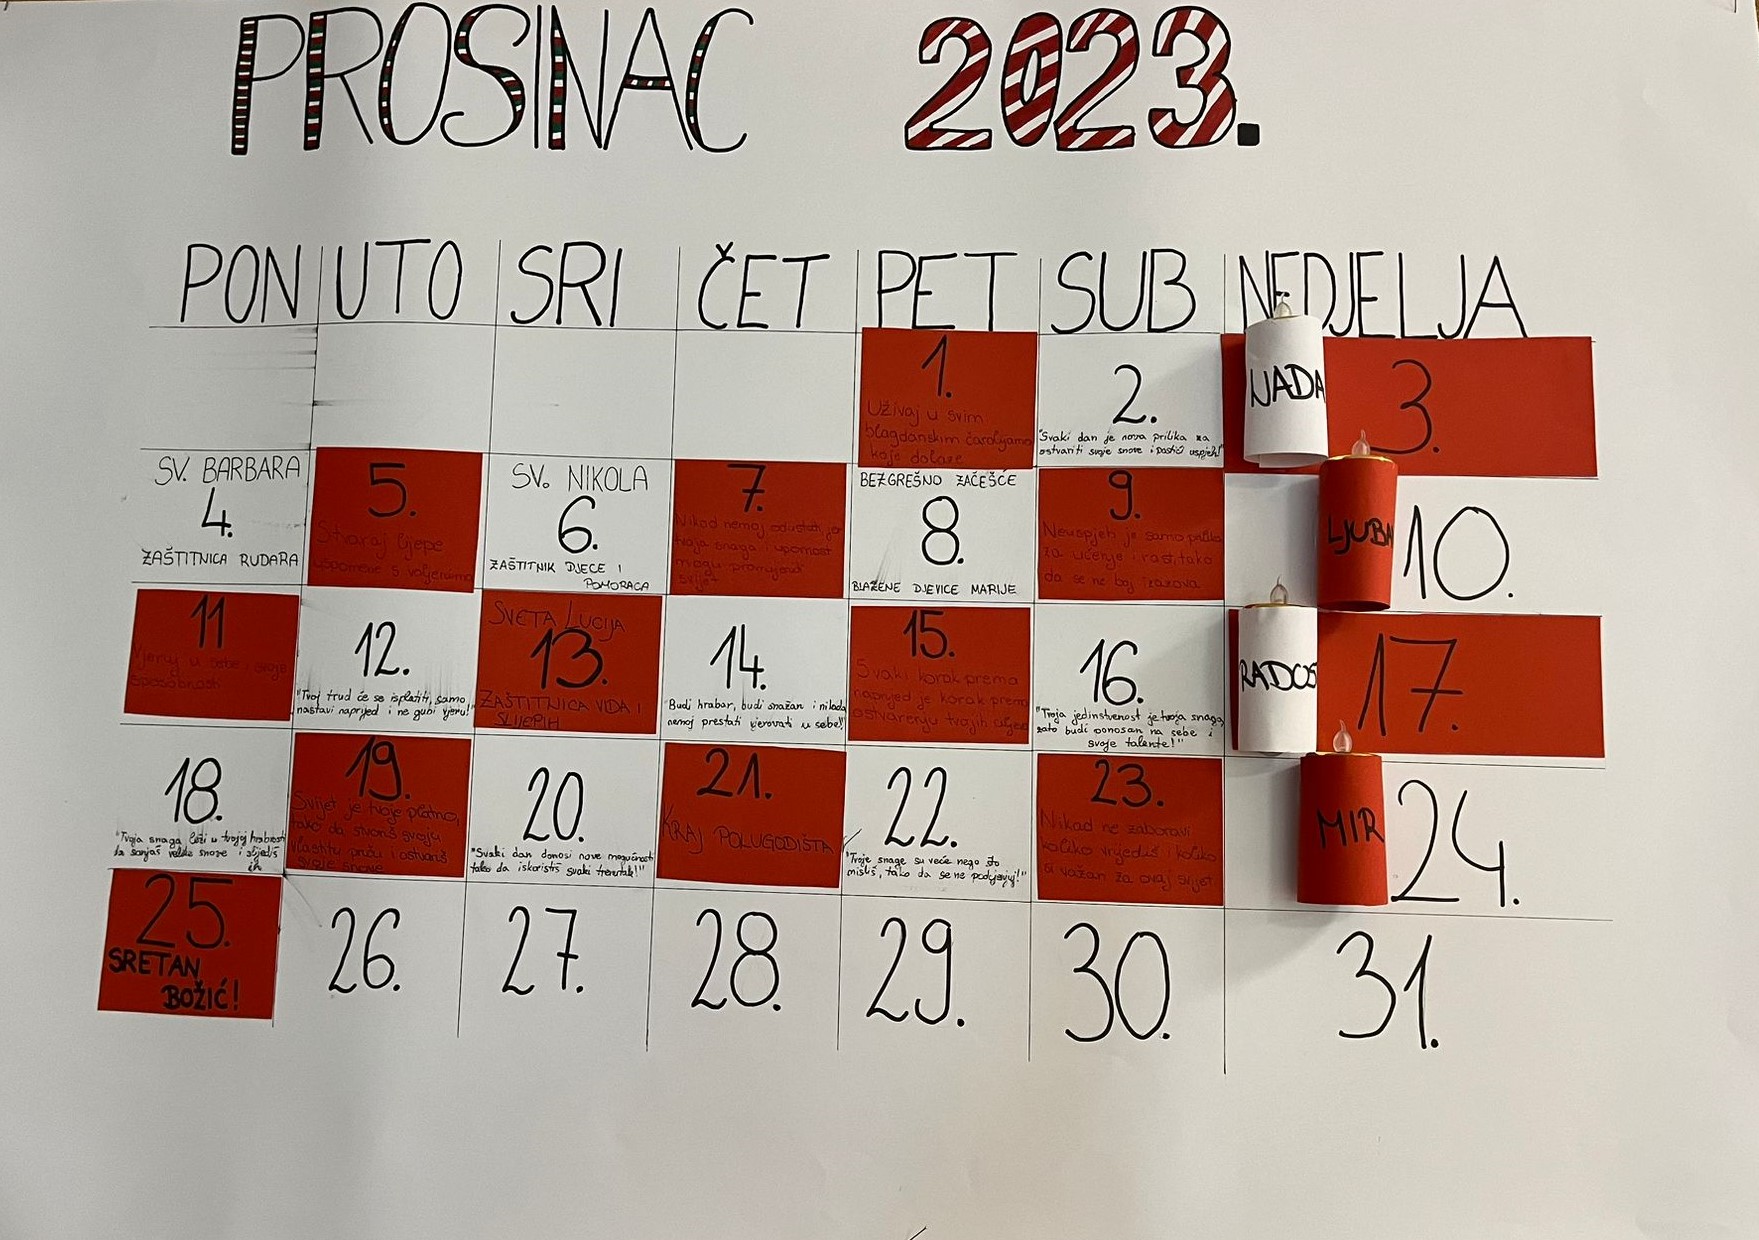 PROSINAC 2023.
PON UTO SRI ČET PET SUB NEDJELJA
1.
Uživaj u svim
blagdanskim čarolijama
koje dolaze
2.
"Svaki dan je nova prilika za
ostvariti svoje snove i postići uspjeh!"
NADA
3.
SV. BARBARA
4.
ZAŠTITNICA RUDARA
5.
Stvaraj lijepe
uspomene s voljenima
SV. NIKOLA
6.
ZAŠTITNIK DJECE I
POMORACA
7.
Nikad nemoj odustati, jer
tvoja snaga i upornost
mogu promijeniti
svijet
BEZGREŠNO ZAČEŠĆE
8.
BLAŽENE DJEVICE MARIJE
9.
Neuspjeh je samo prilika
za učenje i rast, tako
da se ne boj izazova
LJUBA
10.
11
Vjeruj u sebe i svoje
sposobnosti
12.
"Tvoj trud će se isplatiti, samo
nastavi naprijed i ne gubi vjeru!"
SVETA LUCIJA
13.
ZAŠTITNICA VIDA I
SLIJEPIH
14.
"Budi hrabar, budi snažan i nikada
nemoj prestati vjerovati u sebe!"
15.
Svaki korak prema
naprijed je korak prema
ostvarenju tvojih ciljeva
16.
"Tvoja jedinstvenost je tvoja snaga,
zato budi ponosan na sebe i
svoje talente!"
RADOS
17.
18.
"Tvoja snaga leži u tvojoj hrabrosti
da sanjaš velike snove i slijediš
ih"
19.
Svijet je tvoje platno,
tako da stvoriš svoju
vlastitu priču i ostvariš
svoje snove
20.
"Svaki dan donosi nove mogućnosti
tako da iskoristiš svaki trenutak!"
21.
KRAJ POLUGODIŠTA
22.
"Tvoje snage su veće nego što
misliš, tako da se ne podcjenjuj!"
23.
Nikad ne zaboravi
koliko vrijediš i koliko
si važan za ovaj svijet
MIR
24.
25.
SRETAN
BOŽIĆ!
26.
27.
28.
29.
30.
31.